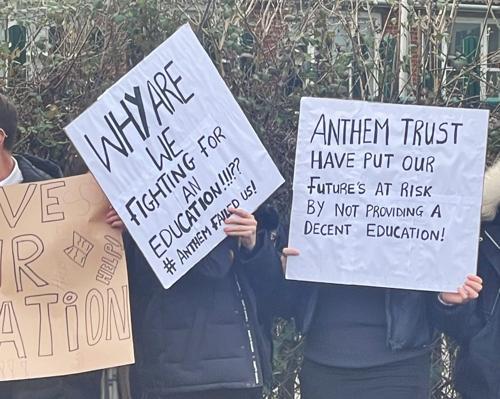 VE
UR
HELP!
ATION
WHY ARE
WE
FIGHTING FOR
AN
EDUCATION!!!??
# ANTHEM FAILED US!
ANTHEM TRUST
HAVE PUT OUR
FUTURE'S AT RISK
BY NOT PROVIDING A
DECENT EDUCATION!